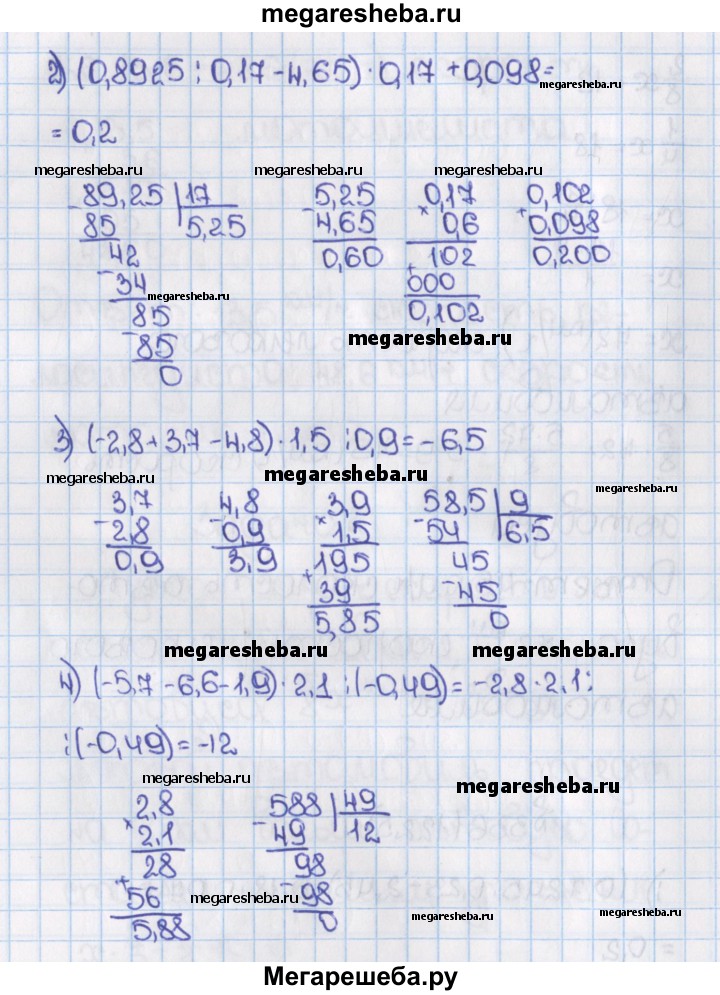 megaresheba.ru
2) (0,8925 : 0,17 - 4,65) · 0,17 + 0,098 =
megaresheba.ru
= 0,2
megaresheba.ru megaresheba.ru megaresheba.ru
- 89,25 | 17
85 5,25
42
- 34
megaresheba.ru
85
- 85
0
- 5,25
4,65
0,60
× 0,17
0,6
+ 102
000
0,102
+ 0,102
0,098
0,200
megaresheba.ru
3) (-2,8 + 3,7 - 4,8) · 1,5 : 0,9 = -6,5
megaresheba.ru
megaresheba.ru
- 3,7
2,8
0,9
- 4,8
0,9
3,9
× 3,9
1,5
+ 195
39
5,85
58,5 | 9
- 54 6,5
45
- 45
0
megaresheba.ru
megaresheba.ru
4) (-5,7 - 6,6 - 1,9) · 2,1 : (-0,49) = -2,8 · 2,1 :
: (-0,49) = -12
megaresheba.ru
megaresheba.ru
× 2,8
2,1
+ 28
56
5,88
588 | 49
- 49 12
98
- 98
0
megaresheba.ru
megaresheba.ru
megaresheba.ru
Мегарешеба.ру